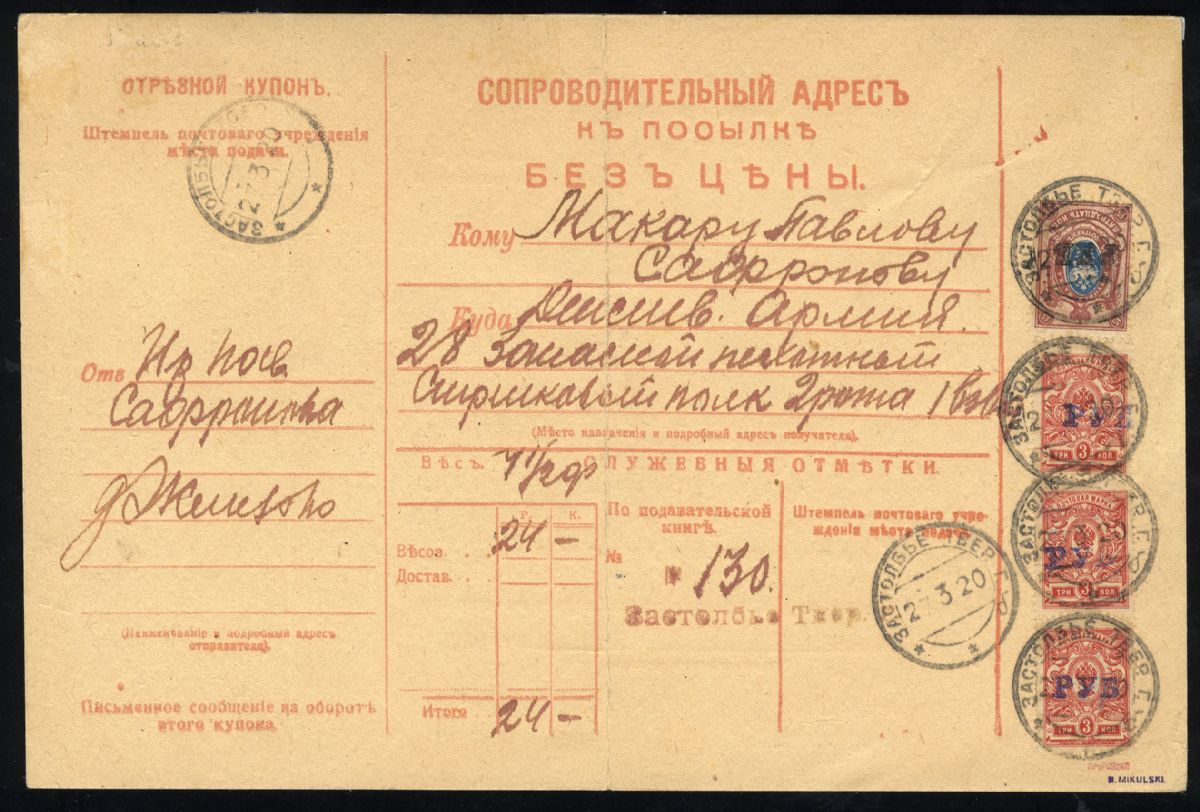 ОТРѢЗНОЙ КУПОНЪ.
Штемпель почтоваго учрежденія
мѣста подачи.
ЗАСТОЛБЬЕ
27 3 20
Отъ
Сафронова
(Наименованіе и подробный адресъ
отправителя).
Письменное сообщеніе на оборотѣ
этого купона.
СОПРОВОДИТЕЛЬНЫЙ АДРЕСЪ
КЪ ПОСЫЛКѢ
БЕЗЪ ЦѢНЫ.
Кому Макару Павлову
Сафронову
Куда Армия.
28 Запасной пехотной
полк 2 рота 1
(Мѣсто назначенія и подробный адресъ получателя).
Вѣсъ.
СЛУЖЕБНЫЯ ОТМѢТКИ.
Р. К.
Вѣсов. 24 —
Достав.
Итого 24 —
По подавательской
книгѣ.
№ 130.
Застолбье Твер.
Штемпель почтоваго учре-
жденія мѣста подачи.
ЗАСТОЛБЬЕ ТВЕР. Г.
27 3 20
ЗАСТОЛБЬЕ ТВЕР. Г.
ПЯТНАДЦАТЬ КОП.
ЗАСТОЛБЬЕ ТВЕР. Г.
РУБ
ТРИ 3 КОП.
ПОЧТОВАЯ МАРКА
РУБ
ТРИ 3 КОП.
ЗАСТОЛБЬЕ ТВЕР. Г.
РУБ
ТРИ 3 КОП.
B. MIKULSKI.